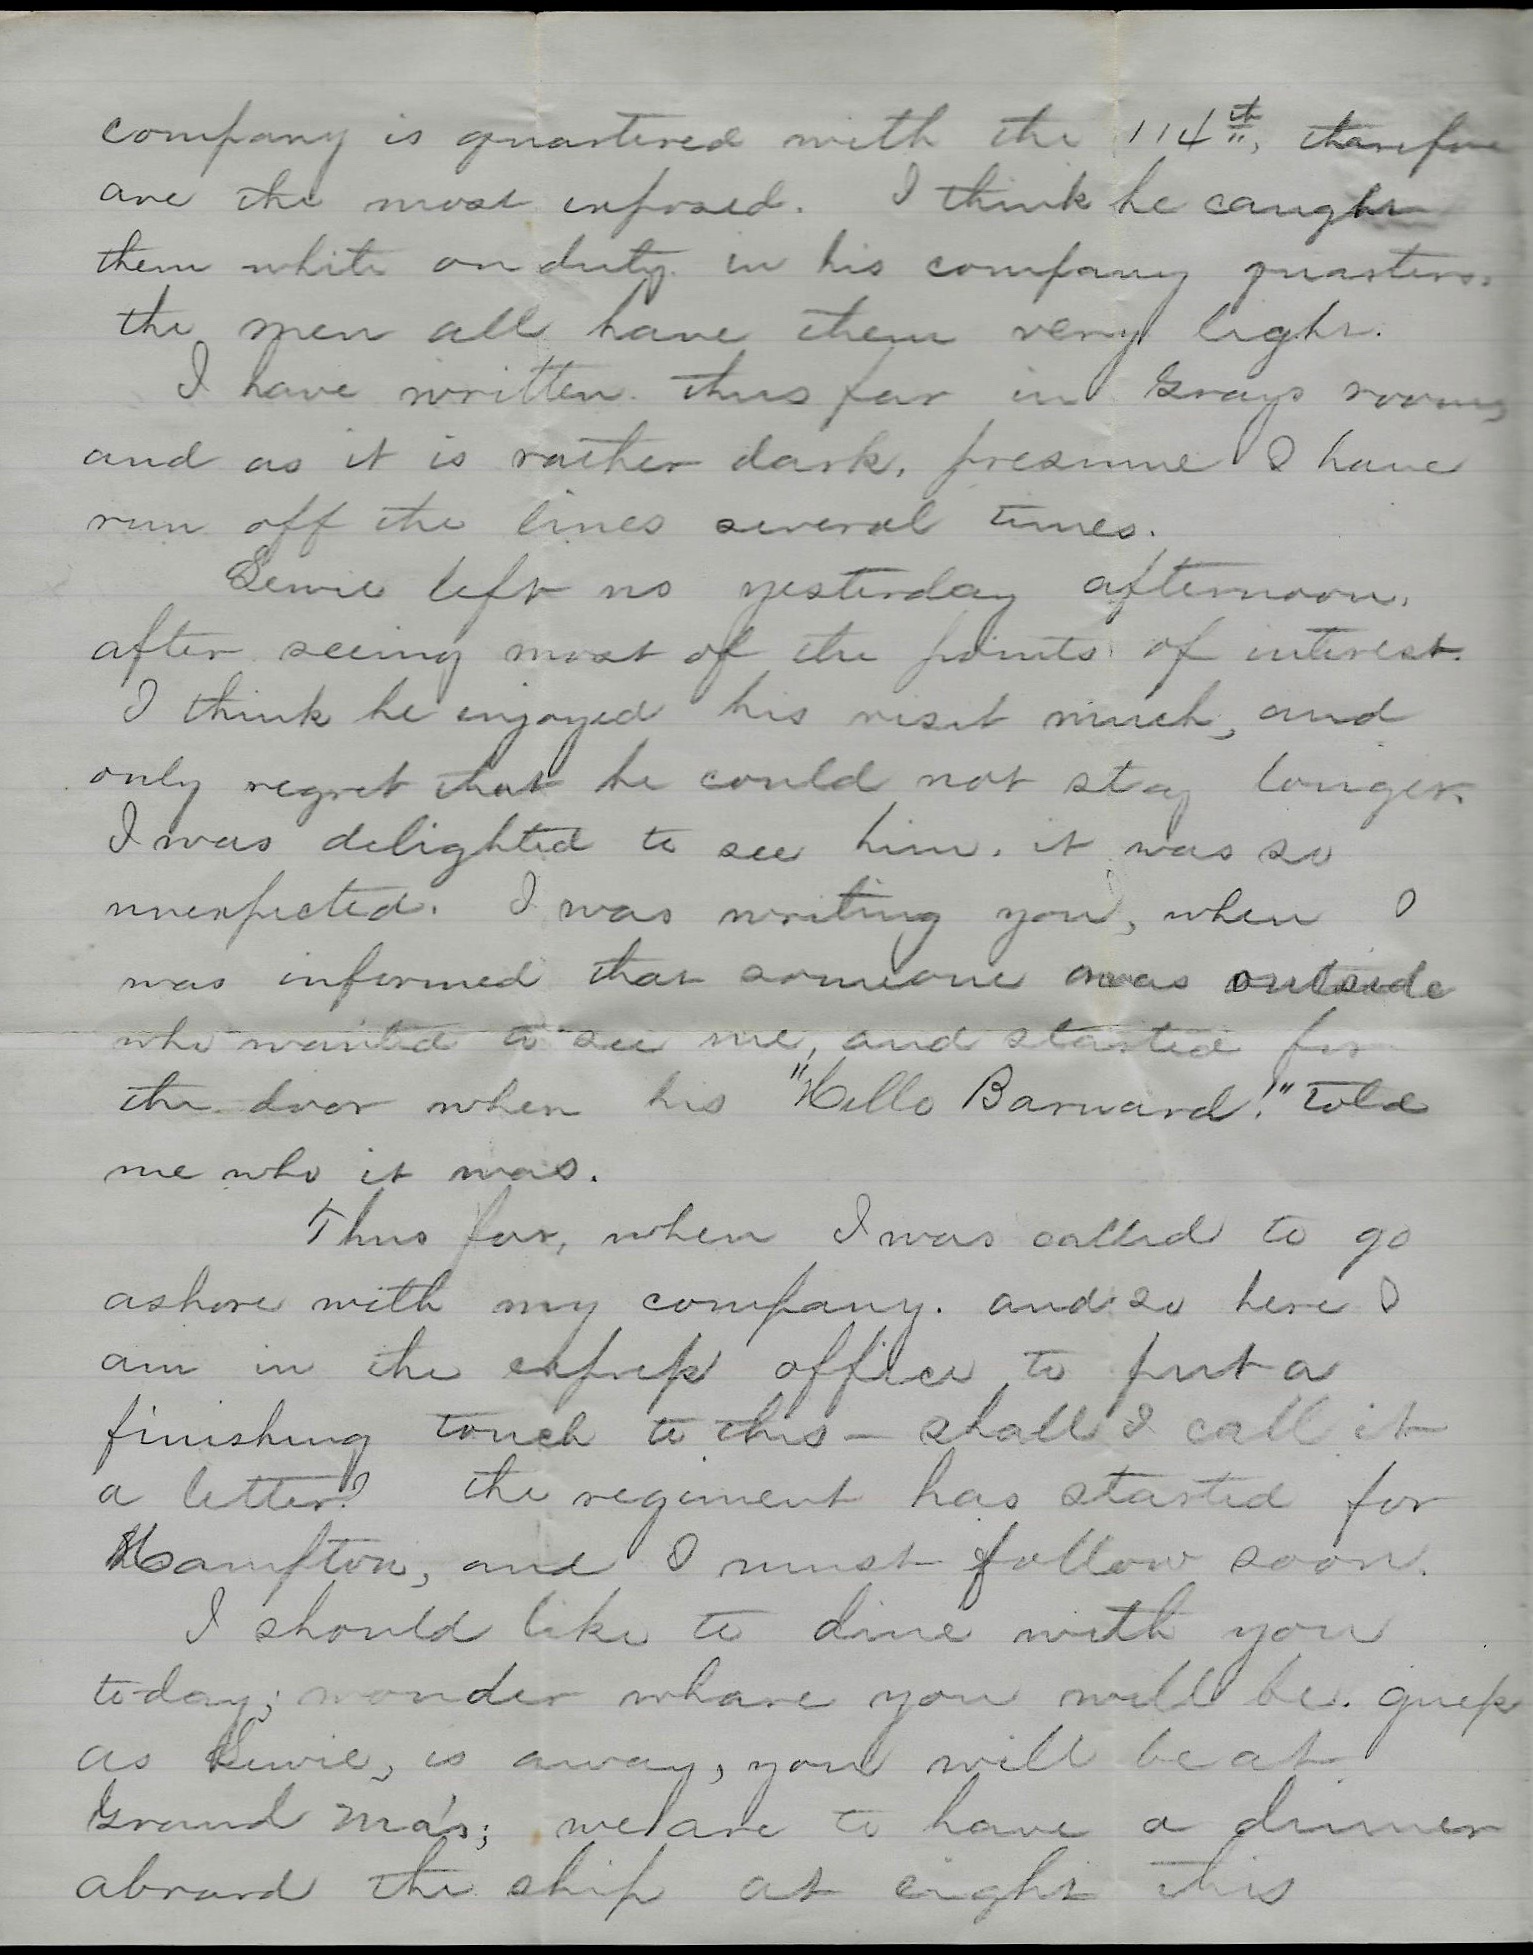 company is quartered with the 114th, tharefore
are the most exposed. I think he caught
them while on duty in his company quarters.
the men all have them very light.
I have written thus far in Grays room,
and as it is rather dark, presume I have
run off the lines several times.
Lewie left us yesterday afternoon,
after seeing most of the points of interest.
I think he enjoyed his visit much, and
only regret that he could not stay longer.
I was delighted to see him. it was so
unexpected. I was writing you, when I
was informed that someone was outside
who wanted to see me, and started for
the door when his "Hello Barnard!" told
me who it was.
Thus far, when I was called to go
ashore with my company. and so here I
am in the express office to put a
finishing touch to this — shall I call it
a letter? the regiment has started for
Hampton, and I must follow soon.
I should like to dine with you
to-day; wonder whare you will be. guess
as Lewie, is away, you will be at
Grand Ma's; we are to have a dinner
abroard the ship at eight this